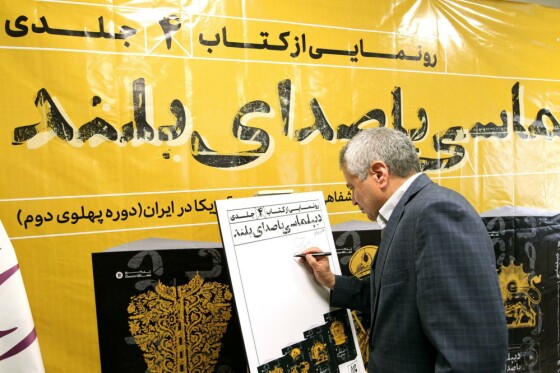 رونمایی از کتاب ۴ جلدی
دیپلماسی با صدای بلند
ریکا در ایران (دوره پهلوی دوم)
رونمایی از کتاب ۴ جلدی
دیپلماسی با صدای بلند